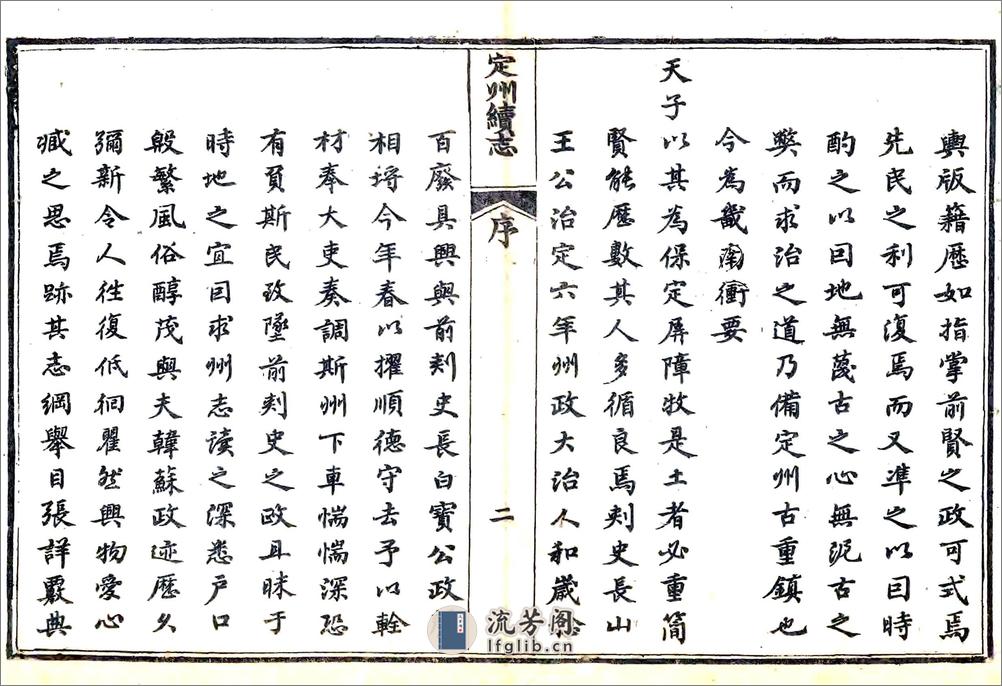 輿版籍歷如指掌前賢之政可式焉
先民之利可復焉而又準之以囙時
酌之以囙地無蔑古之心無泥古之
獘而求治之道乃備定州古重鎮也
今為畿南衝要
天子以其為保定屏障牧是土者必重簡
賢能歷數其人多循良焉刺史長山
王公治定六年州政大治人和歲
定州續志
序
二
百廢具興與前刺史長白寶公政
相埒今年春以擢順德守去予以輇
材奉大吏奏調斯州下車惴惴深恐
有負斯民致墜前刺史之政且昧于
時地之宜囙求州志讀之深悉戶口
殷繁風俗醇茂與夫韓蘇政迹歷久
彌新令人徃復低徊瞿然興物愛心
臧之思焉跡其志綱舉目張詳覈典
流芳阁
lfglib.cn